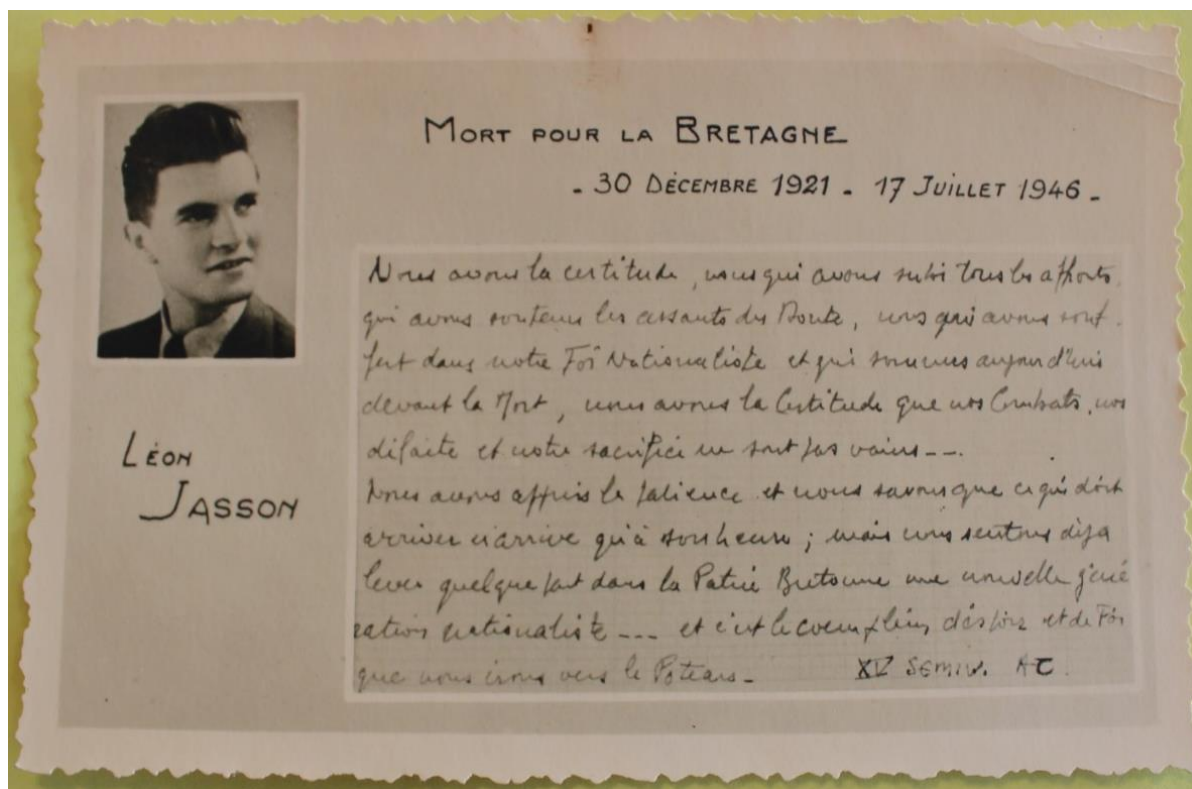 MORT POUR LA BRETAGNE
- 30 DÉCEMBRE 1921 - 17 JUILLET 1946 -
LÉON
JASSON
Nous avons la certitude, nous qui avons subi tous les affronts,
qui avons soutenu les assauts du Doute, nous qui avons souf-
fert dans notre Foi Nationaliste et qui sommes aujourd'hui
devant la Mort, nous avons la Certitude que nos Combats, nos
défaite et notre sacrifice ne sont pas vains --.
Nous avons appris la patience et nous savons que ce qui doit
arriver n'arrive qu'à son heure ; mais nous sentons déjà
lever quelque part dans la Patrie Bretonne une nouvelle géné
ration nationaliste --- et c'est le coeur plein d'espoir et de Foi
que nous irons vers le Poteau -